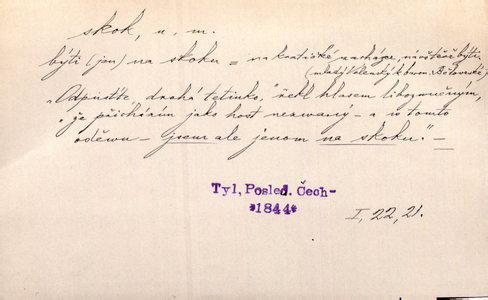 skok, u, m.
býti (jen) na skoku = na kratické návštěvě býti.
(mladý Valenský k baron.
„Odpusťte, drahá tetinko," řekl hlasem libozvučným,
„že přicházím jako host nezwaný – a w tomto
oděwu – jsem ale jenom na skoku." –
Tyl, Posled. Čech-
*1844*
I, 22, 21.